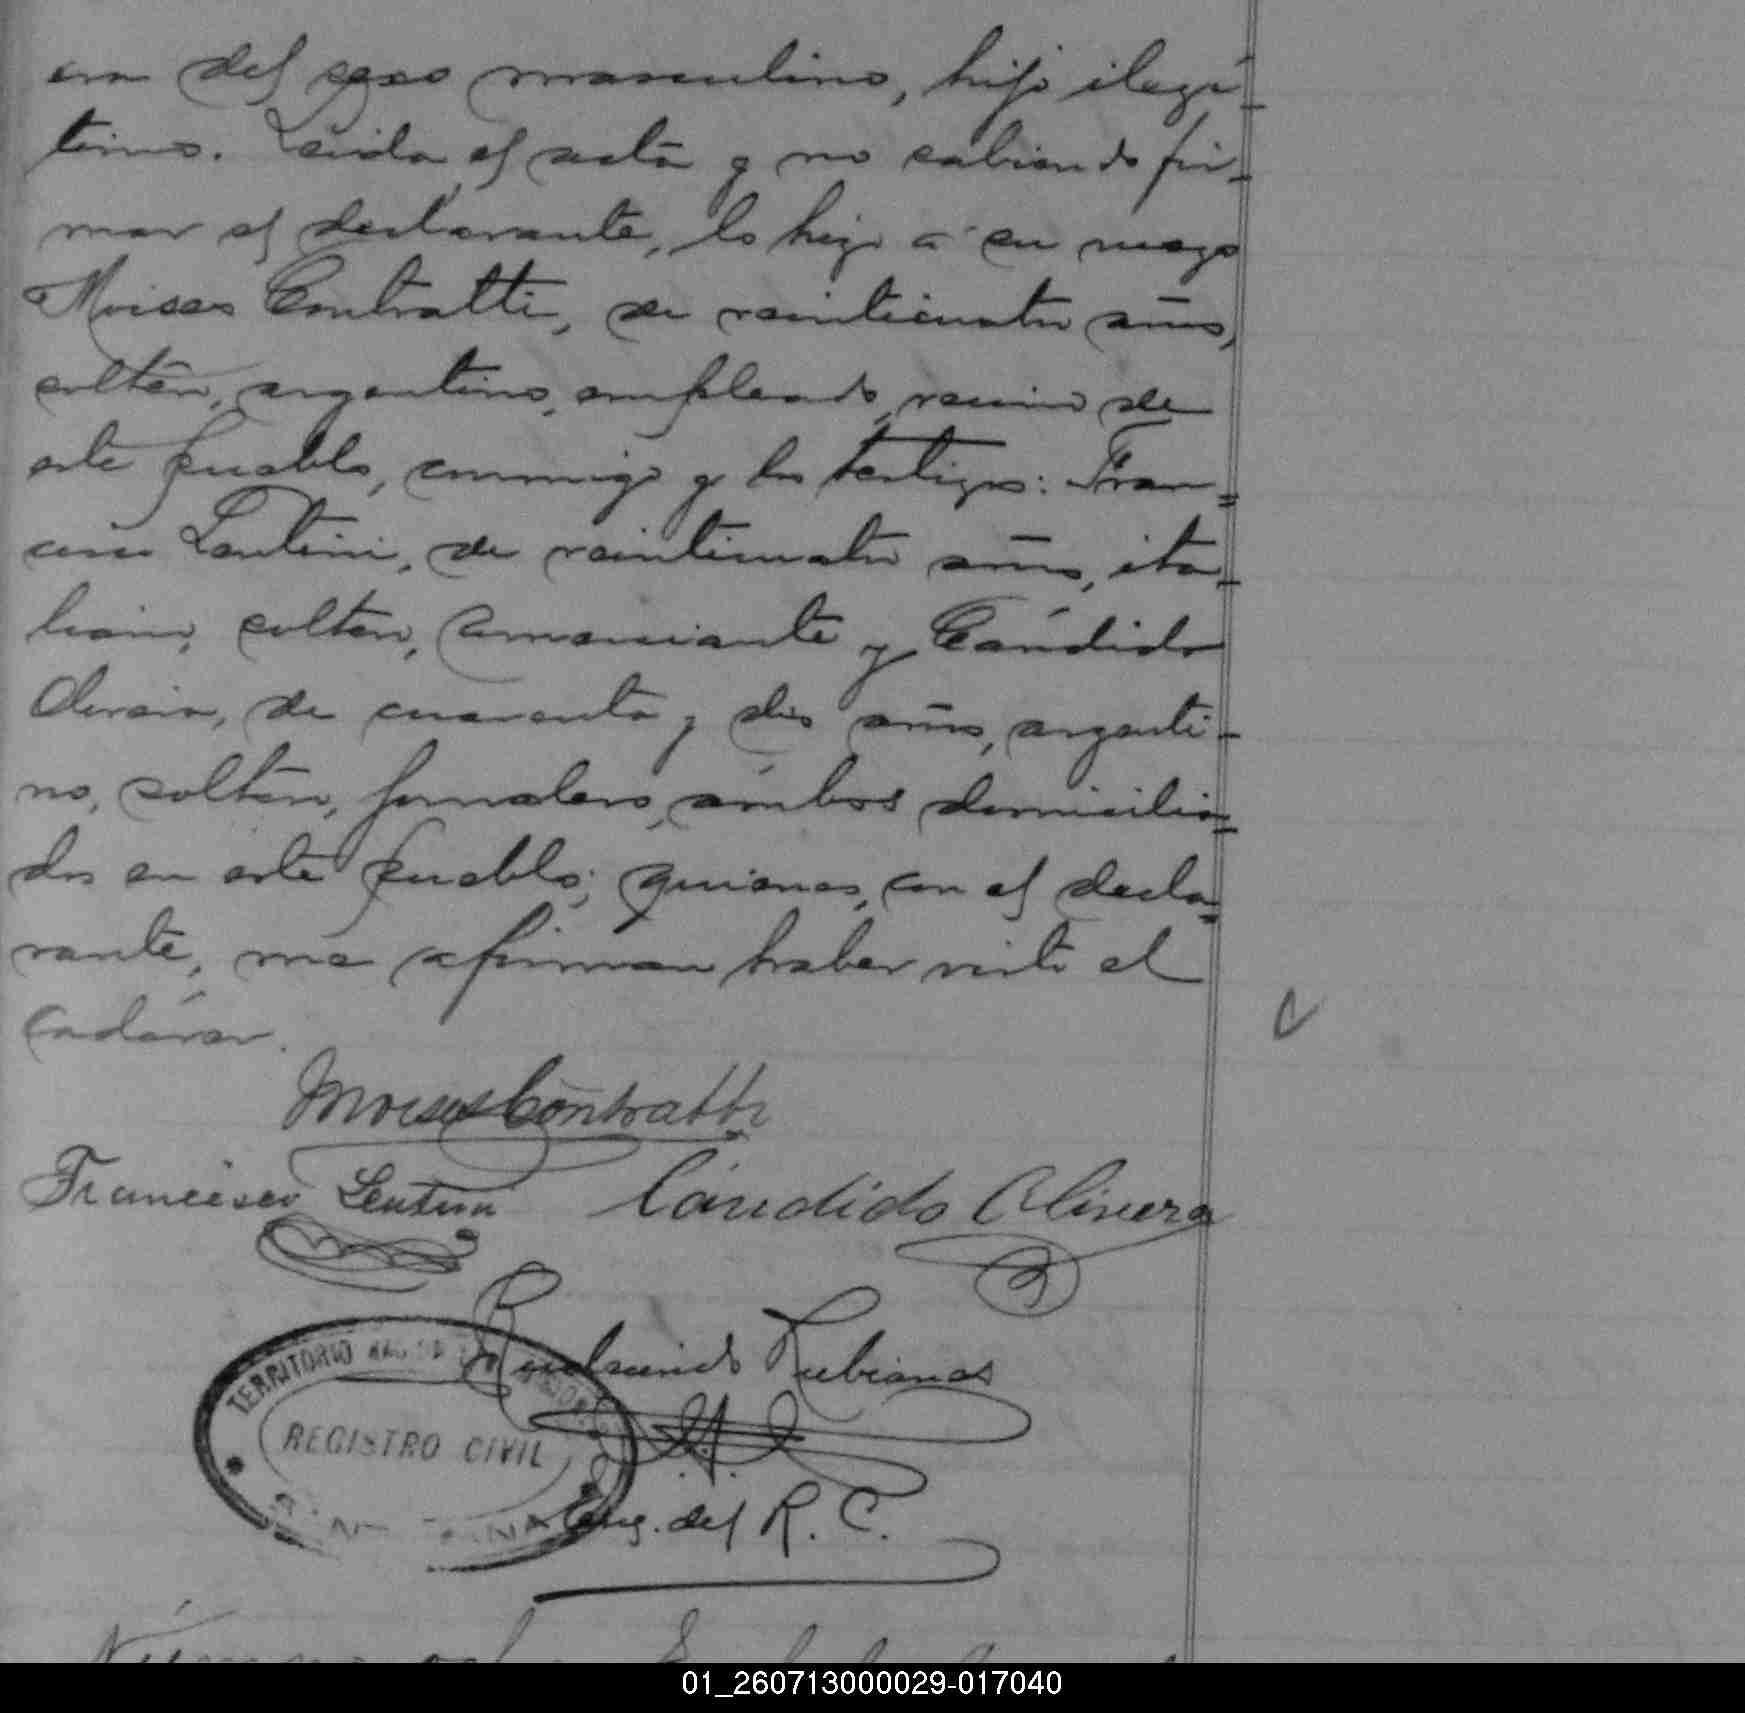 era del sexo masculino, hijo ilegí-
timo. Leida el acta y no sabiendo fir-
mar el declarante, lo hizo á su ruego
Moises Contratti, de veinticuatro años,
soltero, argentino, empleado, vecino de
este pueblo, conmigo y los testigos: Fran-
cisco Lentini, de veinticuatro años, ita-
liano, soltero, comerciante y Cándido
Olivera, de cuarenta y dos años, argenti-
no, soltero, jornalero, ámbos domicilia-
dos en este pueblo; quienes, con el decla-
rante, me afirman haber visto el
cadáver.
Moises Contratti
Francisco Lentini Cándido Olivera
Rubianes
TERRITORIO
REGISTRO CIVIL
Enc. del R. C.
Número
01_260713000029-017040